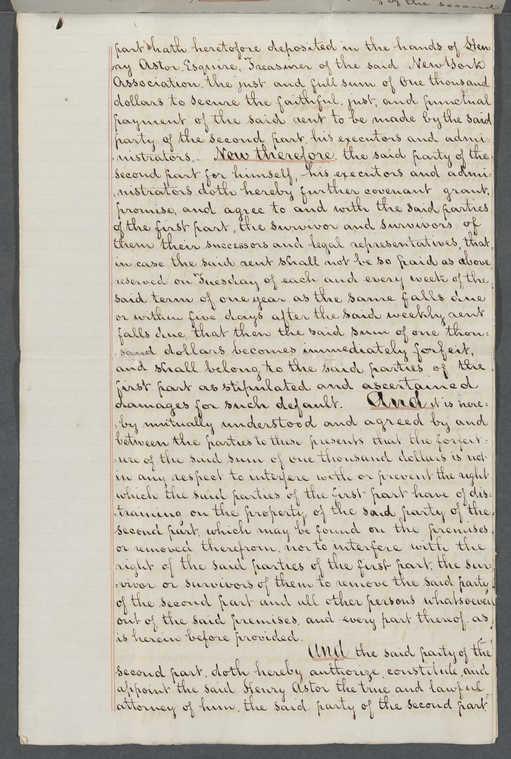 of the second
part hath heretofore deposited in the hands of Hen-
ry Astor, Esquire, Treasurer of the said New York
Association, the just and full sum of One thousand
dollars to secure the faithful, just, and punctual
payment of the said rent to be made by the said
party of the second part, his executors and admi-
nistrators. Now therefore, the said party of the
second part for himself, his executors and admi-
nistrators doth hereby further covenant, grant,
promise, and agree to and with the said parties
of the first part, the survivor and survivors of
them their successors and legal representatives, that
in case the said rent shall not be so paid as above
reserved on Tuesday of each and every week of the
said term of one year as the same falls due
or within five days after the said weekly rent
falls due that then the said sum of one thou-
sand dollars becomes immediately forfeit,
and shall belong to the said parties of the
first part as stipulated and ascertained
damages for such default. And it is here-
by mutually understood and agreed by and
between the parties to these presents that the forfeit-
ure of the said sum of one thousand dollars is not
in any respect to interfere with or prevent the right
which the said parties of the first part have of dis-
training on the property of the said party of the
second part, which may be found on the premises
or removed therefrom, nor to interfere with the
right of the said parties of the first part, the sur-
vivor or survivors of them to remove the said party
of the second part and all other persons whatsoever
out of the said premises, and every part thereof, as
is herein before provided.
And the said party of the
second part, doth hereby authorize, constitute, and
appoint the said Henry Astor the true and lawful
attorney of him, the said party of the second part